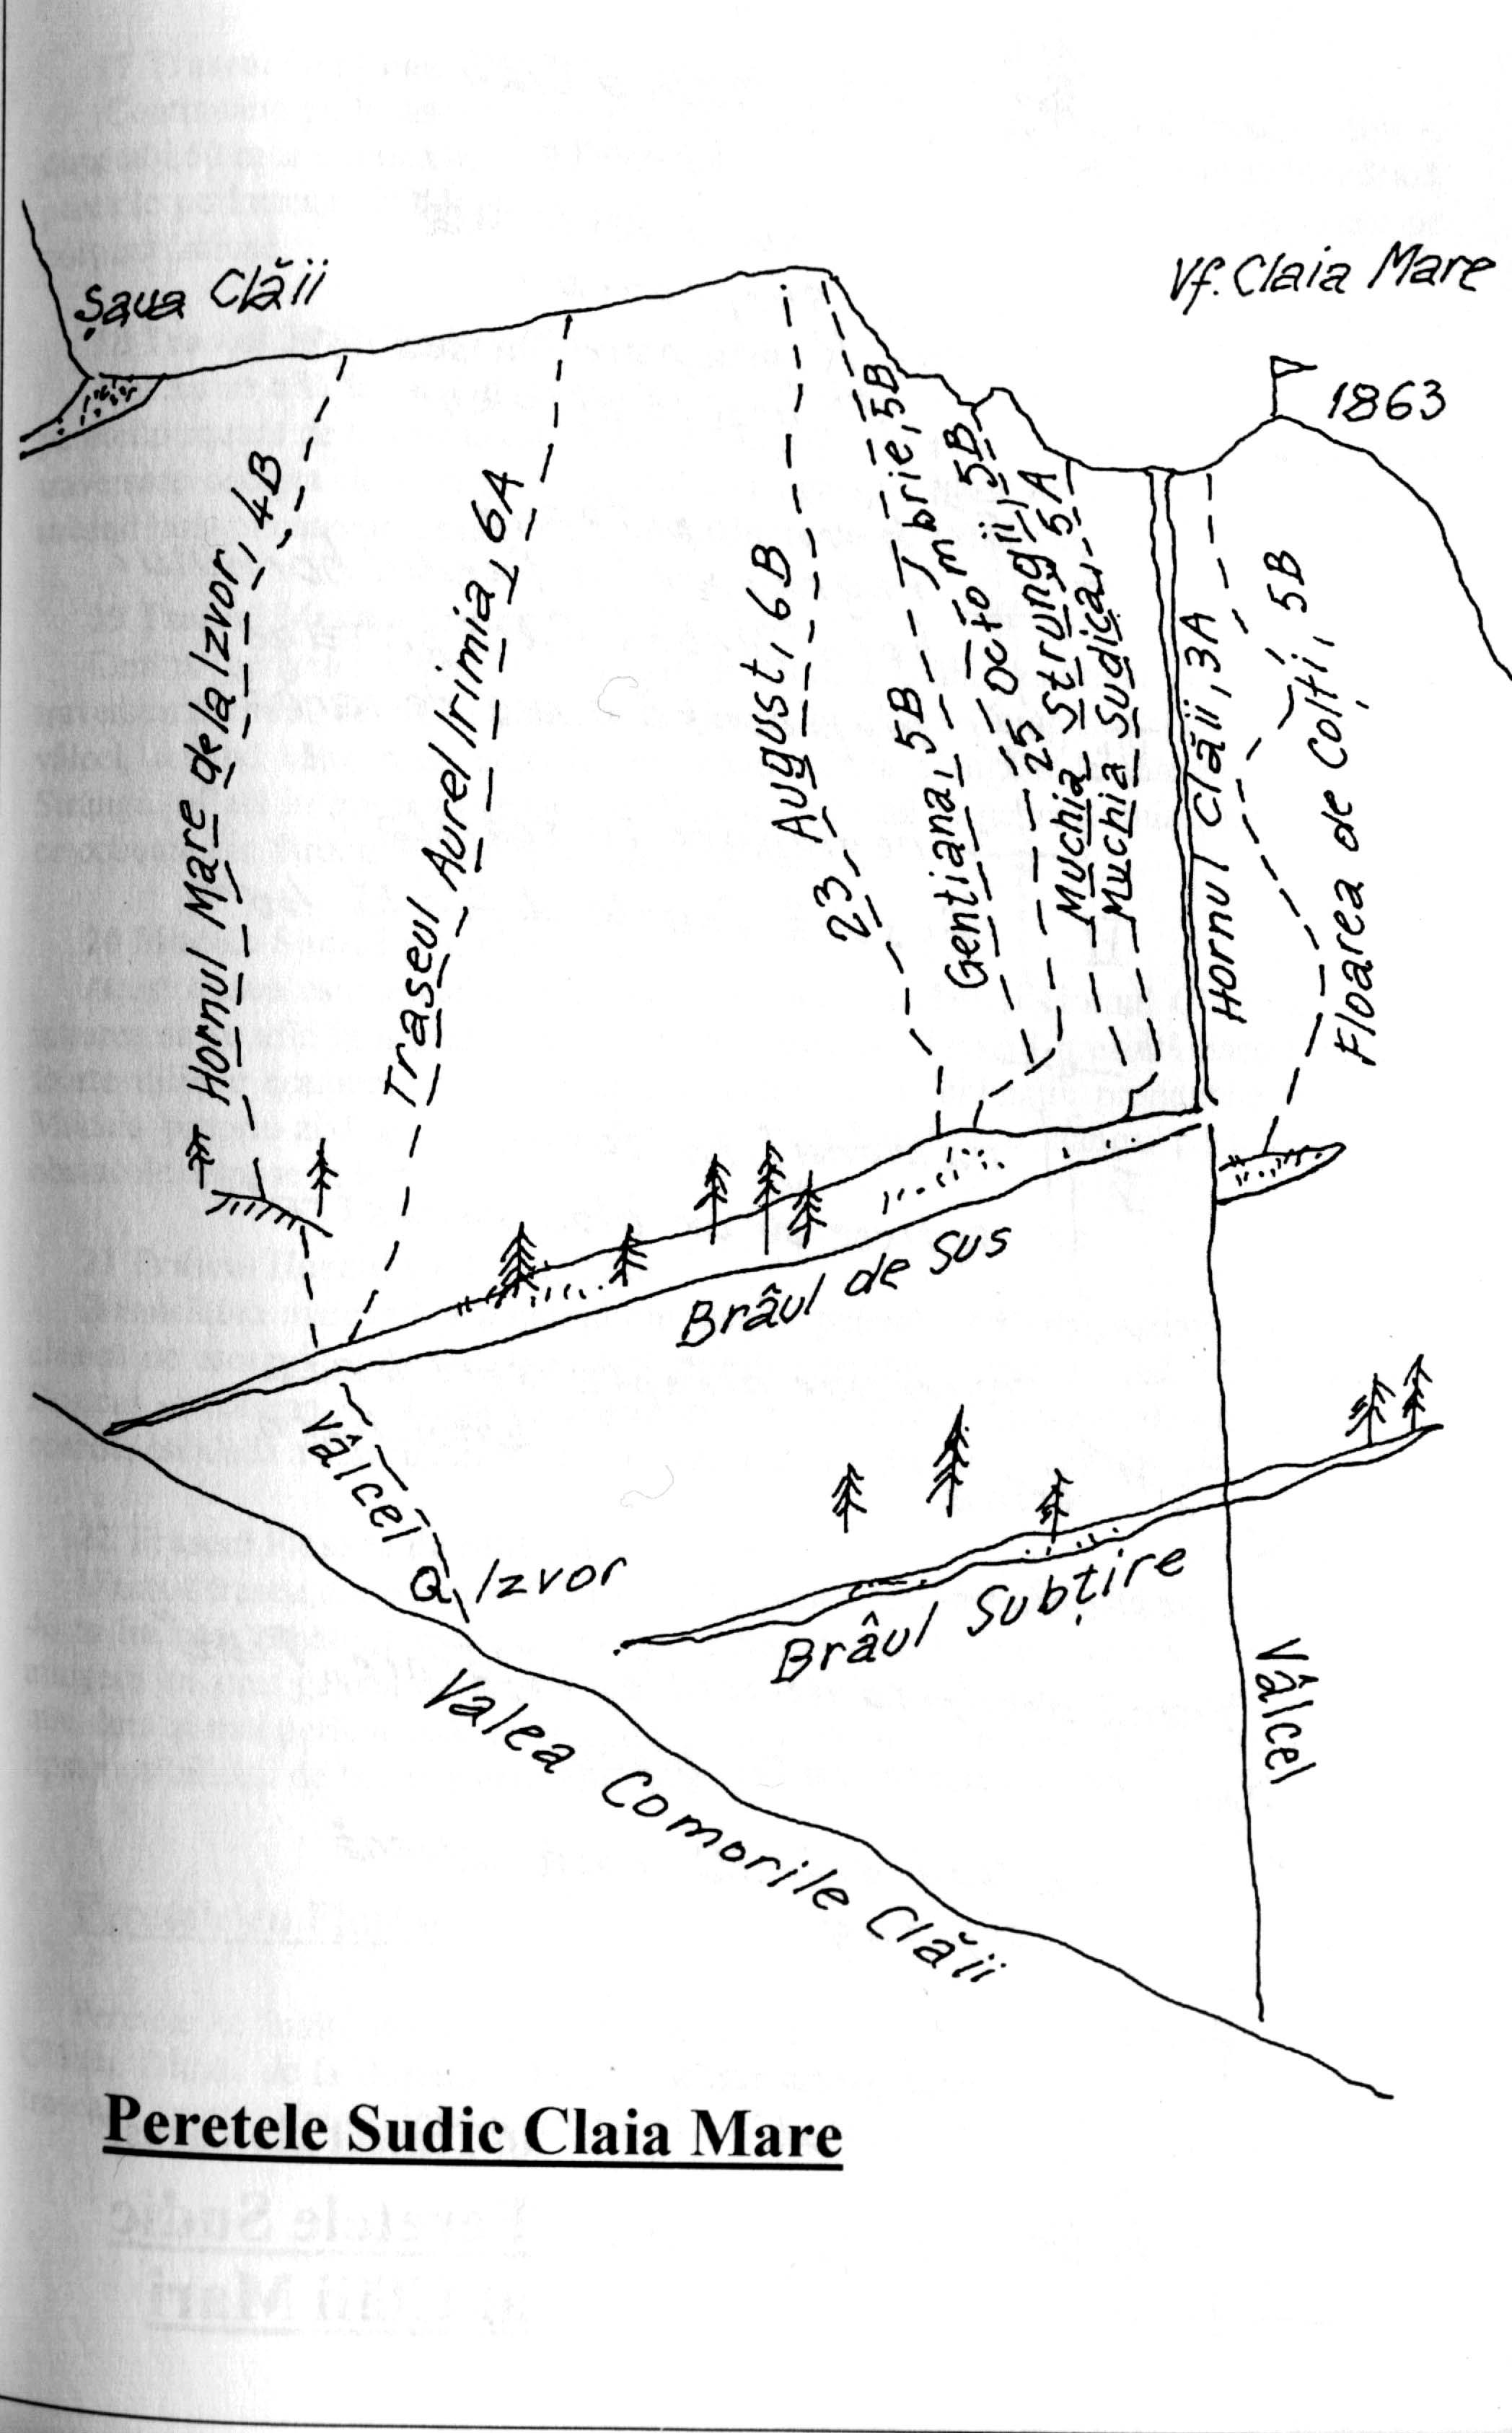 Șaua Clăii
Vf. Claia Mare
1863
Hornul Mare de la Izvor, 4B
Traseul Aurel Irimia, 6A
23 August, 6B
Gentiana, 5B
25 Octombrie, 5B
Muchia Strungii, 5B
Muchia Sudica, 5A
Hornul Clăii, 3A
Floarea de Colți, 5B
Brâul de Sus
Vâlcel
Izvor
Brâul Subțire
Vâlcel
Valea Comorile Clăii
Peretele Sudic Claia Mare